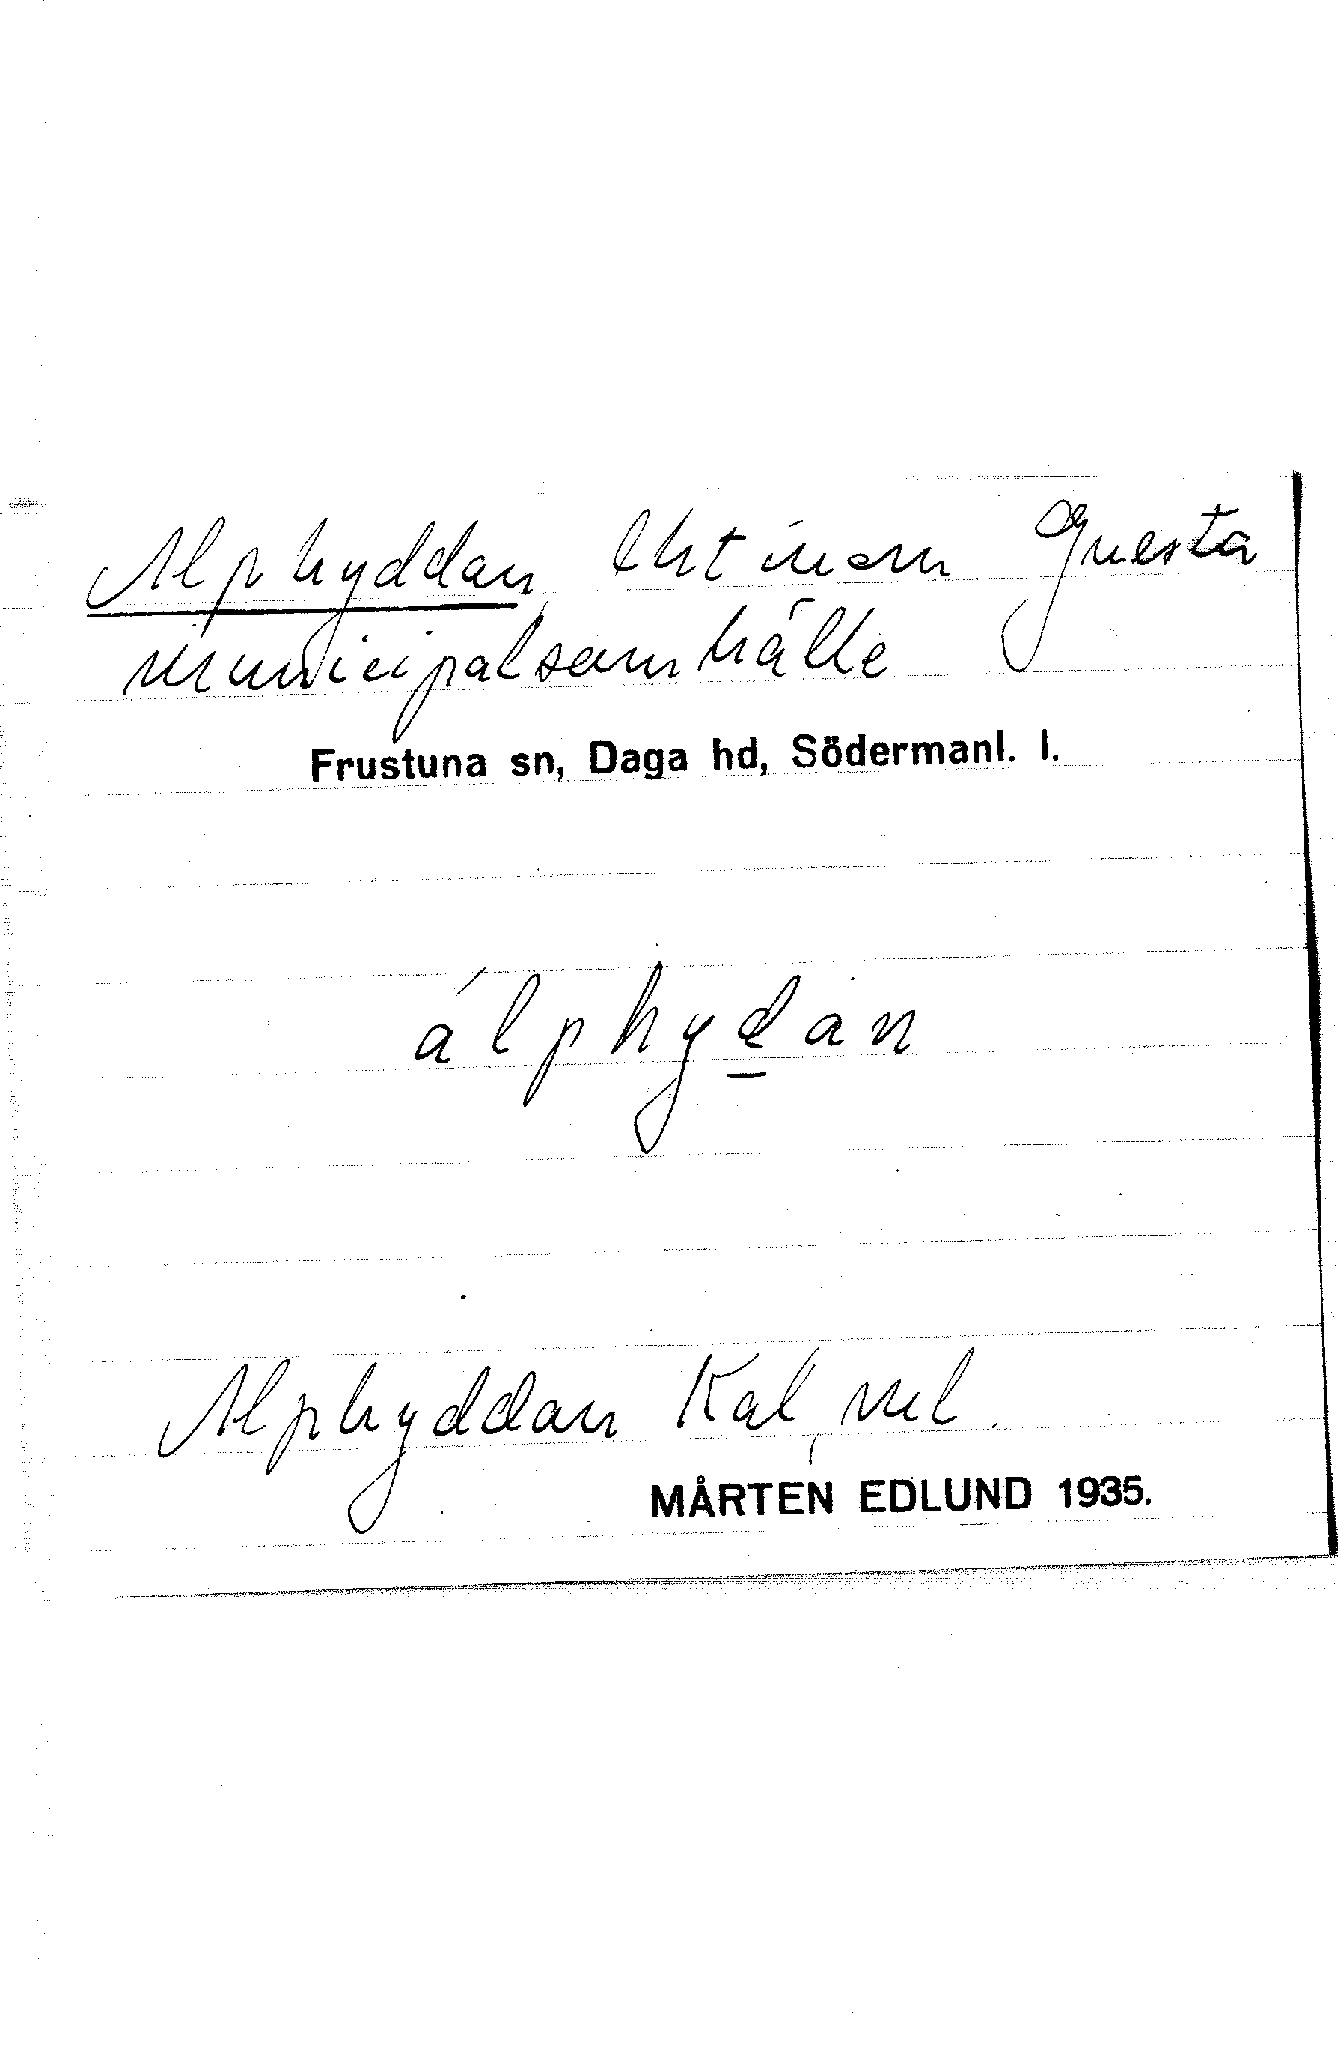 Alphyddan, lht inom Gnesta
municipalsamhälle
Frustuna sn, Daga hd, Södermanl. l.
álphydan
Alphyddan Kal, ml.
MÅRTEN EDLUND 1935.